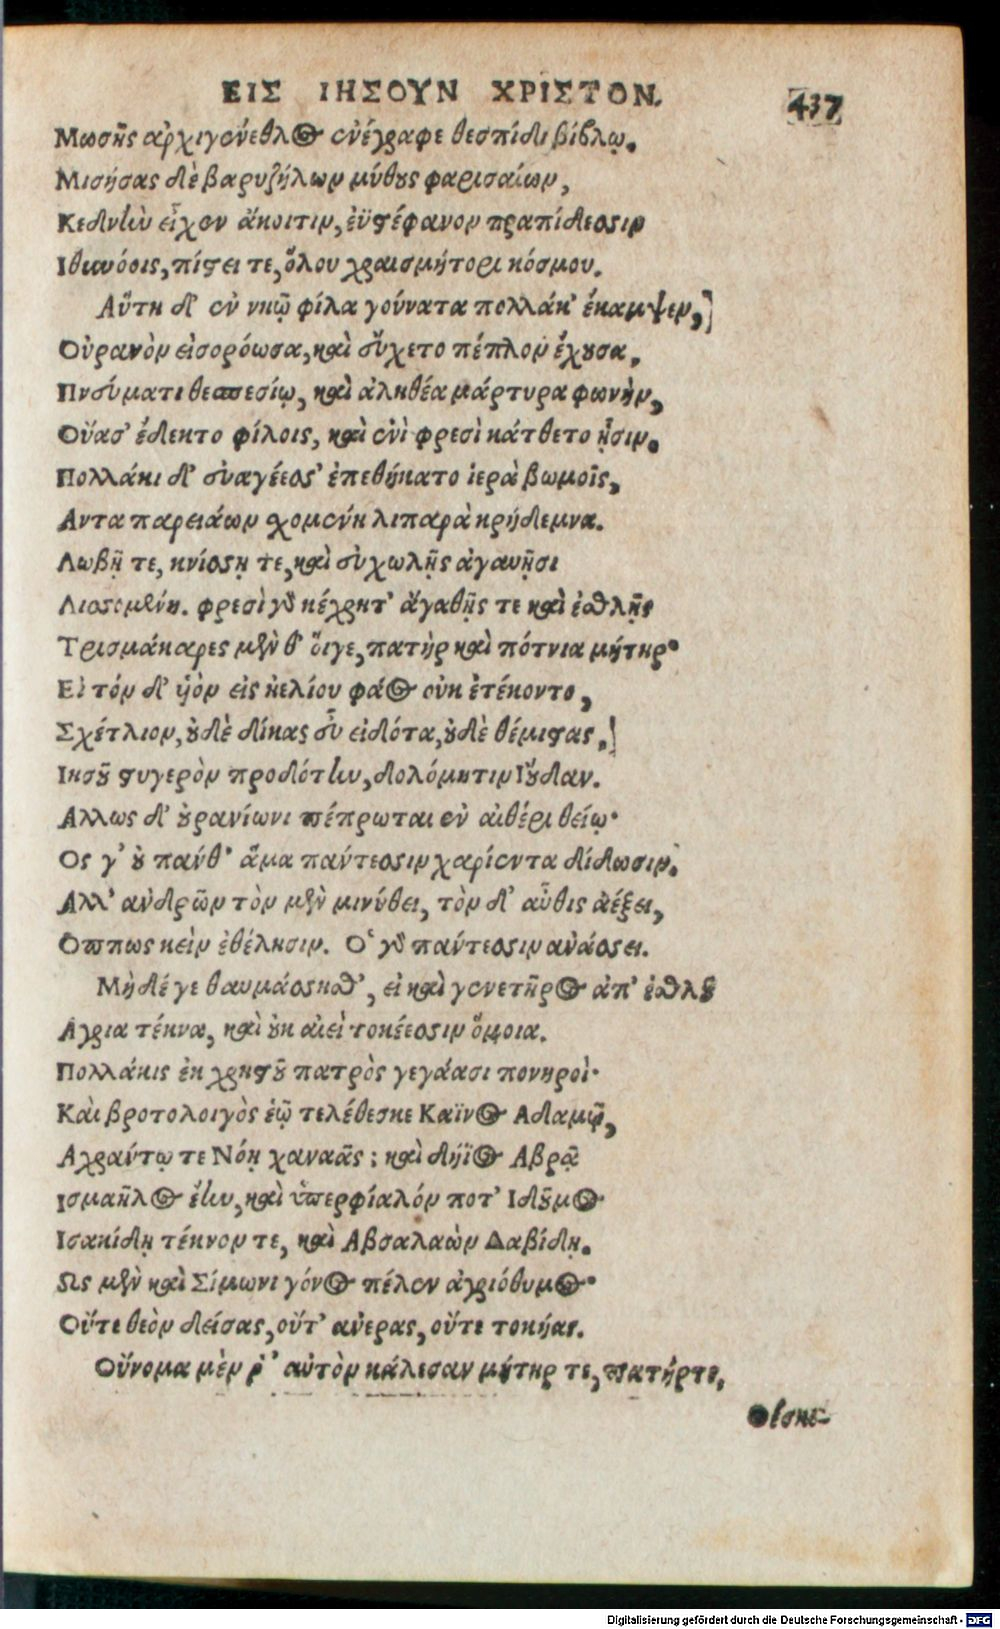 ΕΙΣ ΙΗΣΟΥΝ ΧΡΙΣΤΟΝ.
437
Μωσῆς ἀρχιγενέθλος ἐνέγραφε θεσπίδι βίβλῳ.
Μισήσας δὲ βαρυζήλων μύθους φαρισαίων,
Κεδνὴν εἶχεν ἄκοιτιν, ἐϋστέφανον πραπίδεσσιν
Ιθυνόοις, πίστει τε, ὅλου χραισμήτορι κόσμου.
Αὕτη δ' ἐν νηῷ φίλα γούνατα πολλάκ' ἔκαμψεν,
Οὐρανὸν εἰσορόωσα, καὶ εὔχετο πέπλον ἔχουσα,
Πνεύματι θεσπεσίῳ, καὶ ἀληθέα μάρτυρα φωνὴν,
Οὔασ' ἔδεκτο φίλοις, καὶ ἐνὶ φρεσὶ κάτθετο ᾗσιν.
Πολλάκι δ' εὐαγέεσσ' ἐπεθήκατο ἱερὰ βωμοῖς,
Αντα παρειάων σχομένη λιπαρὰ κρήδεμνα.
Λωβῇ τε, κνίσσῃ τε, καὶ εὐχωλῇς ἀγαυῇσι
Λισσομένη. φρεσὶ γὰρ κέχρητ' ἀγαθῇς τε καὶ ἐσθλῇς
Τρισμάκαρες μὲν θ' οἵγε, πατὴρ καὶ πότνια μήτηρ·
Εἰ τόν δ' υἱὸν εἰς ἠελίου φάος οὐκ ἐτέκοντο,
Σχέτλιον, οὐδὲ δίκας εὖ εἰδότα, οὐδὲ θέμιστας,
Ιησοῦ στυγερὸν προδότην, δολόμητιν Ιούδαν.
Αλλως δ' οὐρανίωνι πέπρωται ἐν αἰθέρι θείῳ·
Ος γ' οὐ πάνθ' ἅμα πάντεσσιν χαρίεντα δίδωσιν.
Αλλ' ἀνδρῶν τὸν μὲν μινύθει, τὸν δ' αὖθις ἀέξει,
Οππως κεὶν ἐθέλησιν. Ο γὰρ πάντεσσιν ἀνάσσει.
Μὴ δέ γε θαυμάσσησθ', εἰ καὶ γενετῆρος ἀπ' ἐσθλοῦ
Αγρια τέκνα, καὶ οὐκ αἰεὶ τοκέεσσιν ὅμοια.
Πολλάκις ἐκ χρηστοῦ πατρὸς γεγάασι πονηροὶ·
Καὶ βροτολοιγὸς ἑῷ τελέθεσκε Καϊνος Αδαμῷ,
Αχράντῳ τε Νόῃ χαναᾶς; καὶ δήϊος Αβρᾷ
Ισμαῆλος ἔην, καὶ ὑπερφίαλόν ποτ' Ιδοῦμος·
Ισακίδῃ τέκνον τε, καὶ Αβσαλαὼν Δαβίδῃ.
Ως μὲν καὶ Σίμωνι γόνος πέλεν ἀγριόθυμος·
Οὔτε θεὸν δείσας, οὔτ' ἀνερας, οὔτε τοκῆας.
Οὔνομα μὲν ῥ' αὐτὸν κάλεσαν μήτηρ τε, πατήρ τε,
Digitalisierung gefördert durch die Deutsche Forschungsgemeinschaft - DFG